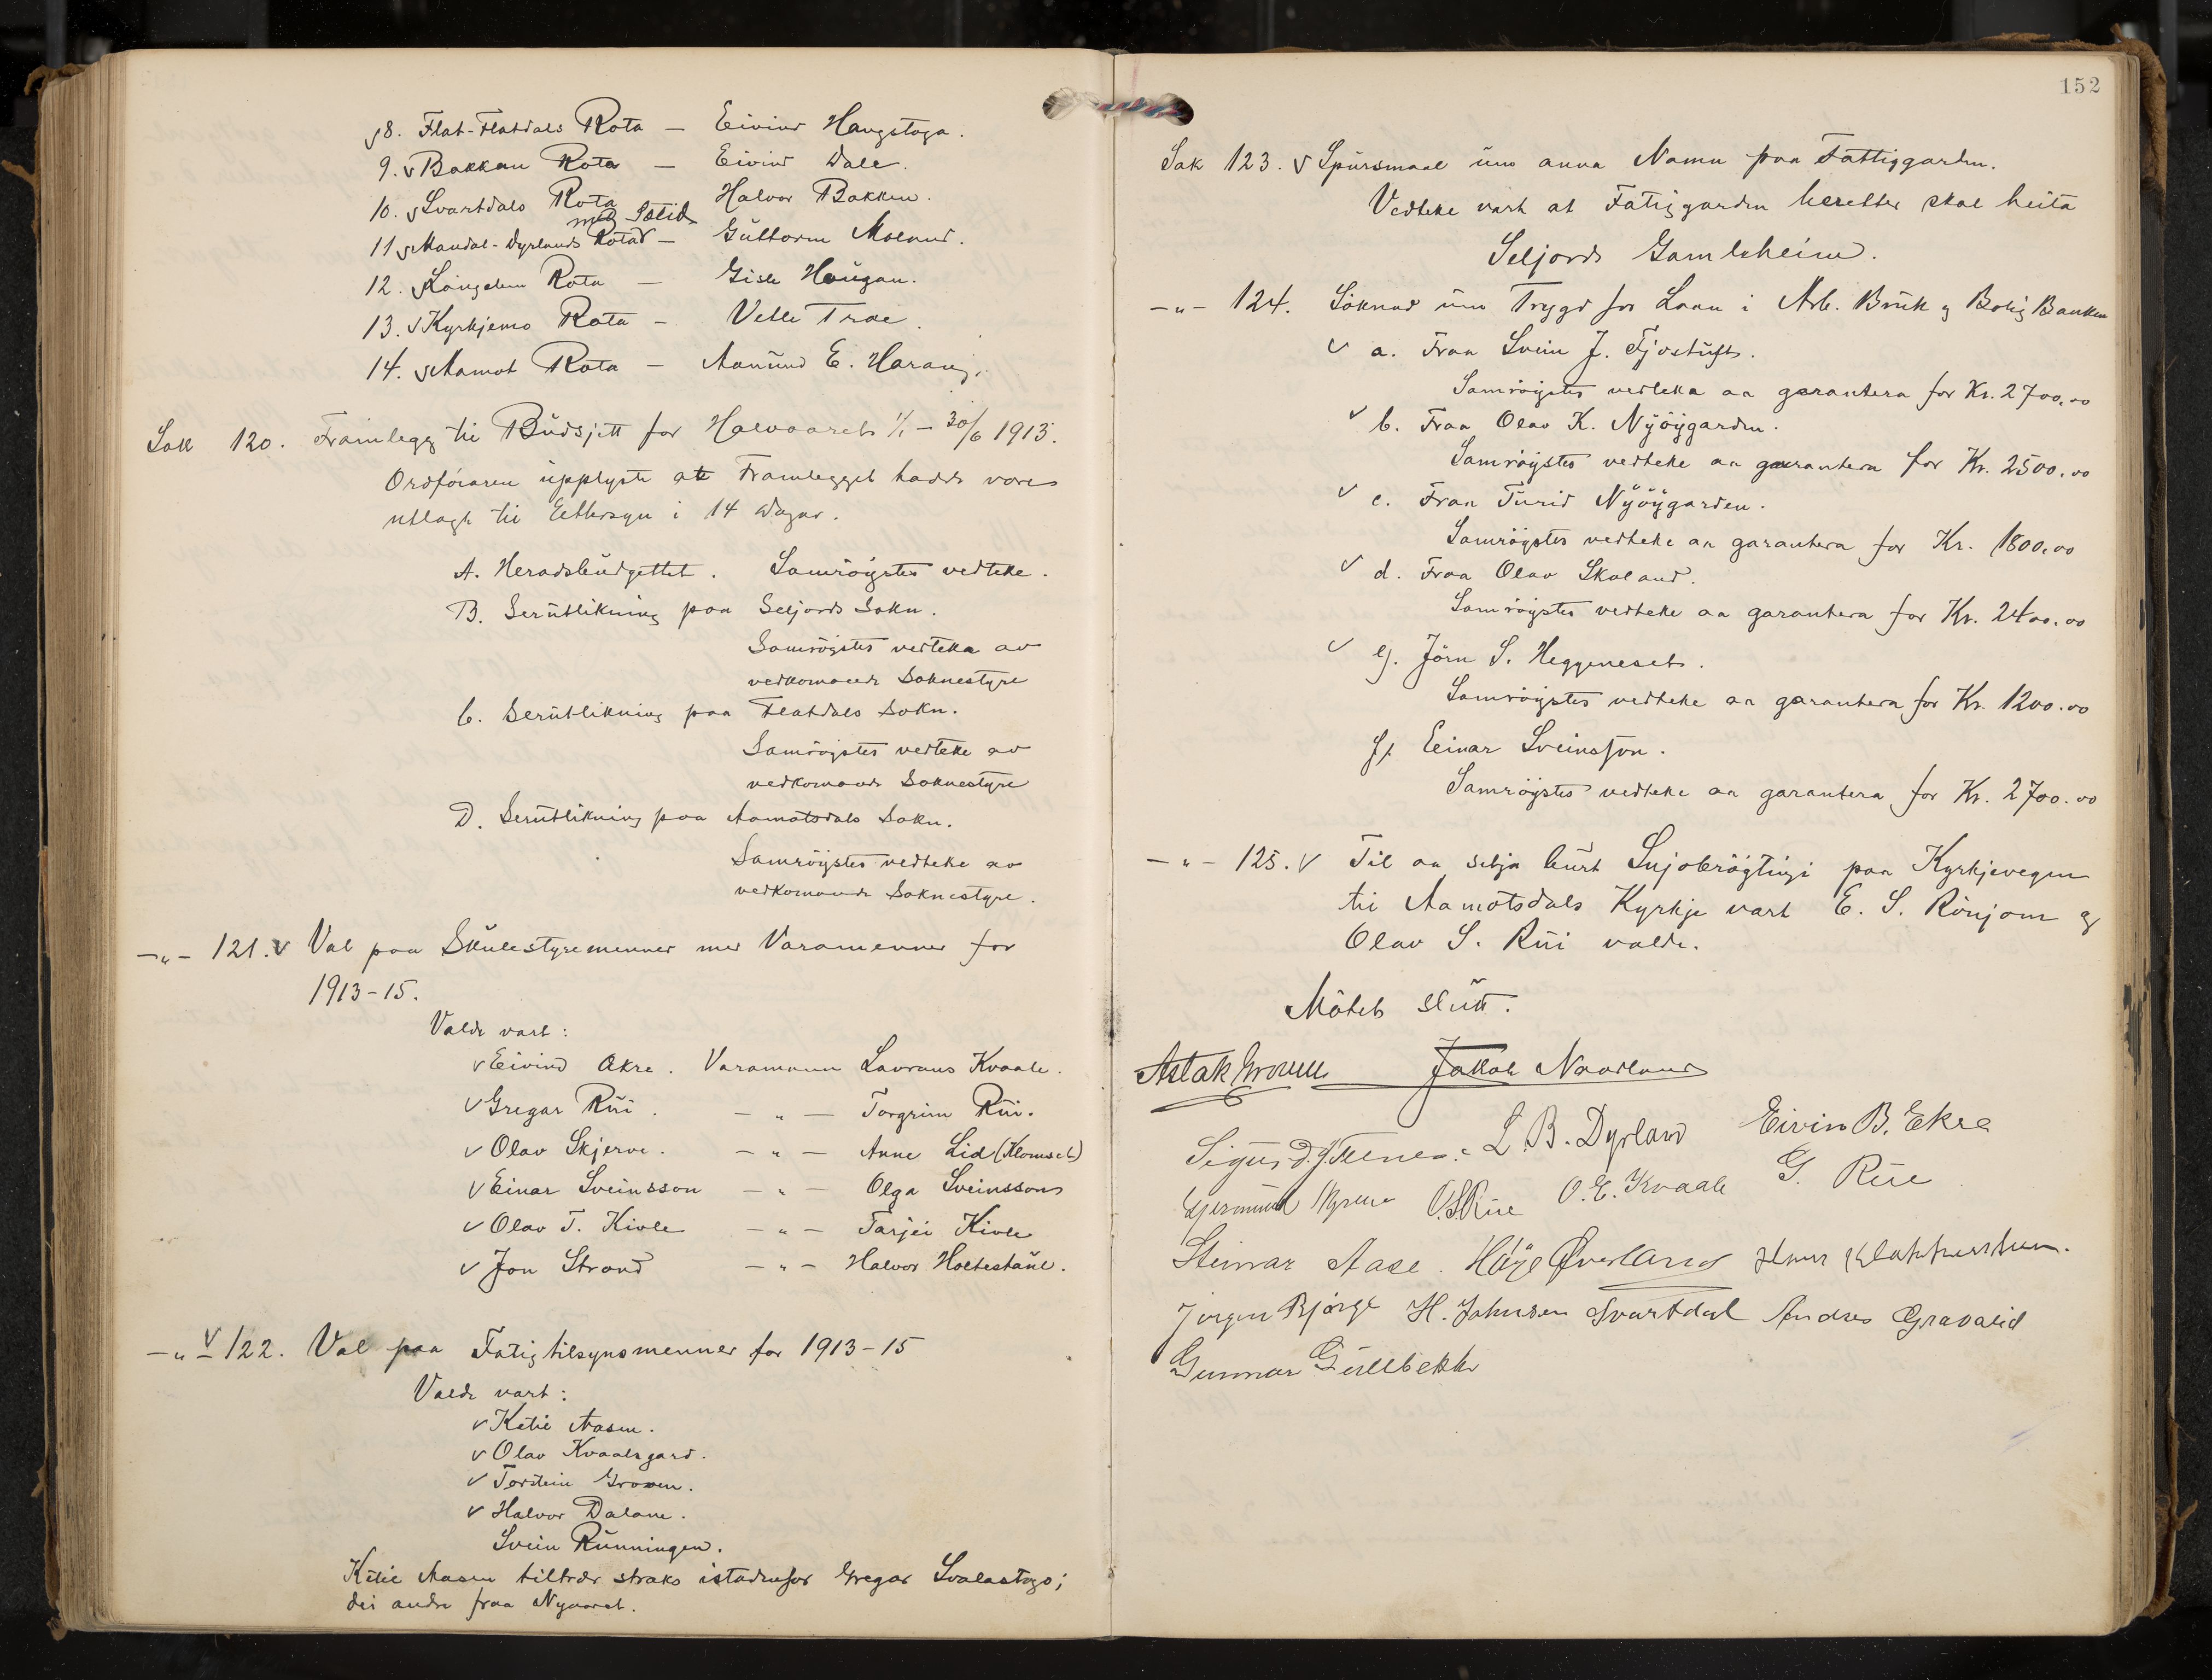 8. Flat-Flatdals Rota — Eivind Haugstoga.
9. v Bakkan Rota — Eivind Dale.
10. v Svartdals Rota Halvor Bakken.
med Istid
11 v Mandal-Dyrlands Rota — Guttorm Moland.
12. v Langelim Rota — Gisle Haugan.
13. v Kyrkjemo Rota — Vetle Trae.
14. v Aamot Rota — Aanund E. Harang.
Sak 120. Framlegg til Budsjett for Halvaaret 1/1 – 30/6 1913.
Ordföraren upplyste at Framlegget hadde vore
utlagt til Ettersyn i 14 Dagar.
A. Heradsbudgettet. Samröystes vedteke.
B. Serutlikning paa Seljords Sokn.
Samröystes vedteke av
vedkomande Soknestyre
C. Serutlikning paa Flatdals Sokn.
Samröystes vedteke av
vedkomande Soknestyre
D. Serutlikning paa Aamotsdals Sokn.
Samröystes vedteke av
vedkomande Soknestyre.
—„— 121. v Val paa Skulestyremenner med Varamenner for
1913–15.
Valde vart:
v Eivind Ekre. Varamann Lavrans Kvaale.
v Gregar Rui. —„— Torgrim Rui.
v Olav Skjerve. —„— Anne Lid (Klomset)
v Einar Sveinsson —„— Olga Sveinsson
v Olav T. Kivle —„— Tarjei Kivle
v Jon Strand —„— Halvor Holtestaul.
—„— v 122. Val paa Fatigtilsynsmenner for 1913–15
Valde vart:
v Ketil Aasen.
v Olav Kvaalsgard.
v Torstein Groven.
v Halvor Dalane.
Svein Runningen.
Ketil Aasen tiltræder straks istadenfor Gregar Svalastoga;
dei andre fraa Nyaaret.
152
Sak 123. v Spursmaal um anna Namn paa Fattiggarden.
Vedteke vart at Fatiggarden heretter skal heita
Seljords Gamleheim.
—„— 124. Söknad um Trygd for Laan i Arb. Bruk og Bolig Banken
v a. Fraa Svein J. Fjostuft.
Samröystes vedteka aa garantera for Kr. 2700,00
v b. Fraa Olav K. Nyöygarden.
Samröystes vedteke aa garantera for Kr. 2500.00
v c. Fraa Turid Nyöygarden.
Samröystes vedteke aa garantera for Kr. 1800.00
v d. Fraa Olav Skoland.
Samröystes vedteke aa garantera for Kr. 2400.00
v e). Jörn S. Heggeneset.
Samröystes vedteke aa garantera for Kr. 1200.00
f). Einar Sveinsson.
Samröystes vedteke aa garantera for Kr. 2700.00
—„— 125. v Til aa setja burt Snjobröytingi paa Kyrkjevegen
til Aamotsdals Kyrkje vart E. S. Rönjom og
Olav S. Rui valde.
Mötet slutt.
Aslak Groven Jakob Naadland
Sigurd J. L. B. Dyrland Eivin B. Ekre
Gjermund O.S. Rue O. E. Kvaale G. Rue
Steinar Aase. Höye Øverland
Jörgen Bjórge H. Johnsen Svartdal Andres Gravalid
Gunnar Gullbekk